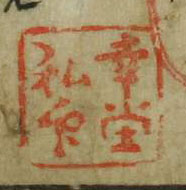 幸堂
私印